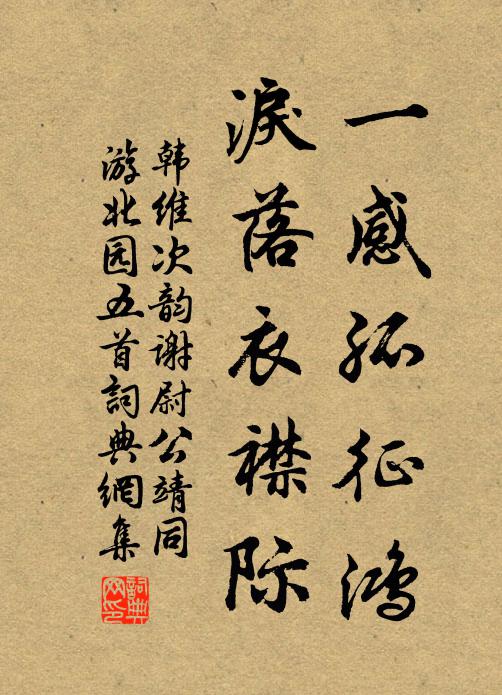 一感孤征鸿
淚落衣襟际
韩维次韵谢尉公靖同
游北园五首詞典網集
詞典
网印